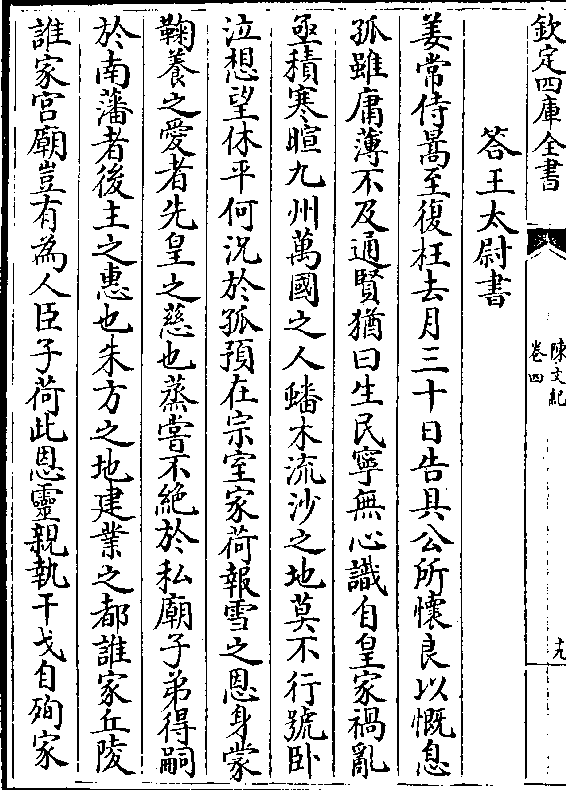 欽定四庫全書
陳文紀
卷四
十九
答王太尉書
姜常侍暠至復枉去月三十日告具公所懷良以慨息
孤雖庸薄不及通賢猶曰生民寧無心識自皇家禍亂
亟積寒暄九州萬國之人蟠木流沙之地莫不行號臥
泣想望休平何況於孤預在宗室家荷報雪之恩身蒙
鞠養之愛者先皇之慈也蒸嘗不絕於私廟子弟得嗣
於南藩者後主之惠也朱方之地建業之都誰家丘陵
誰家宮廟豈有為人臣子荷此恩靈親執干戈自殉家